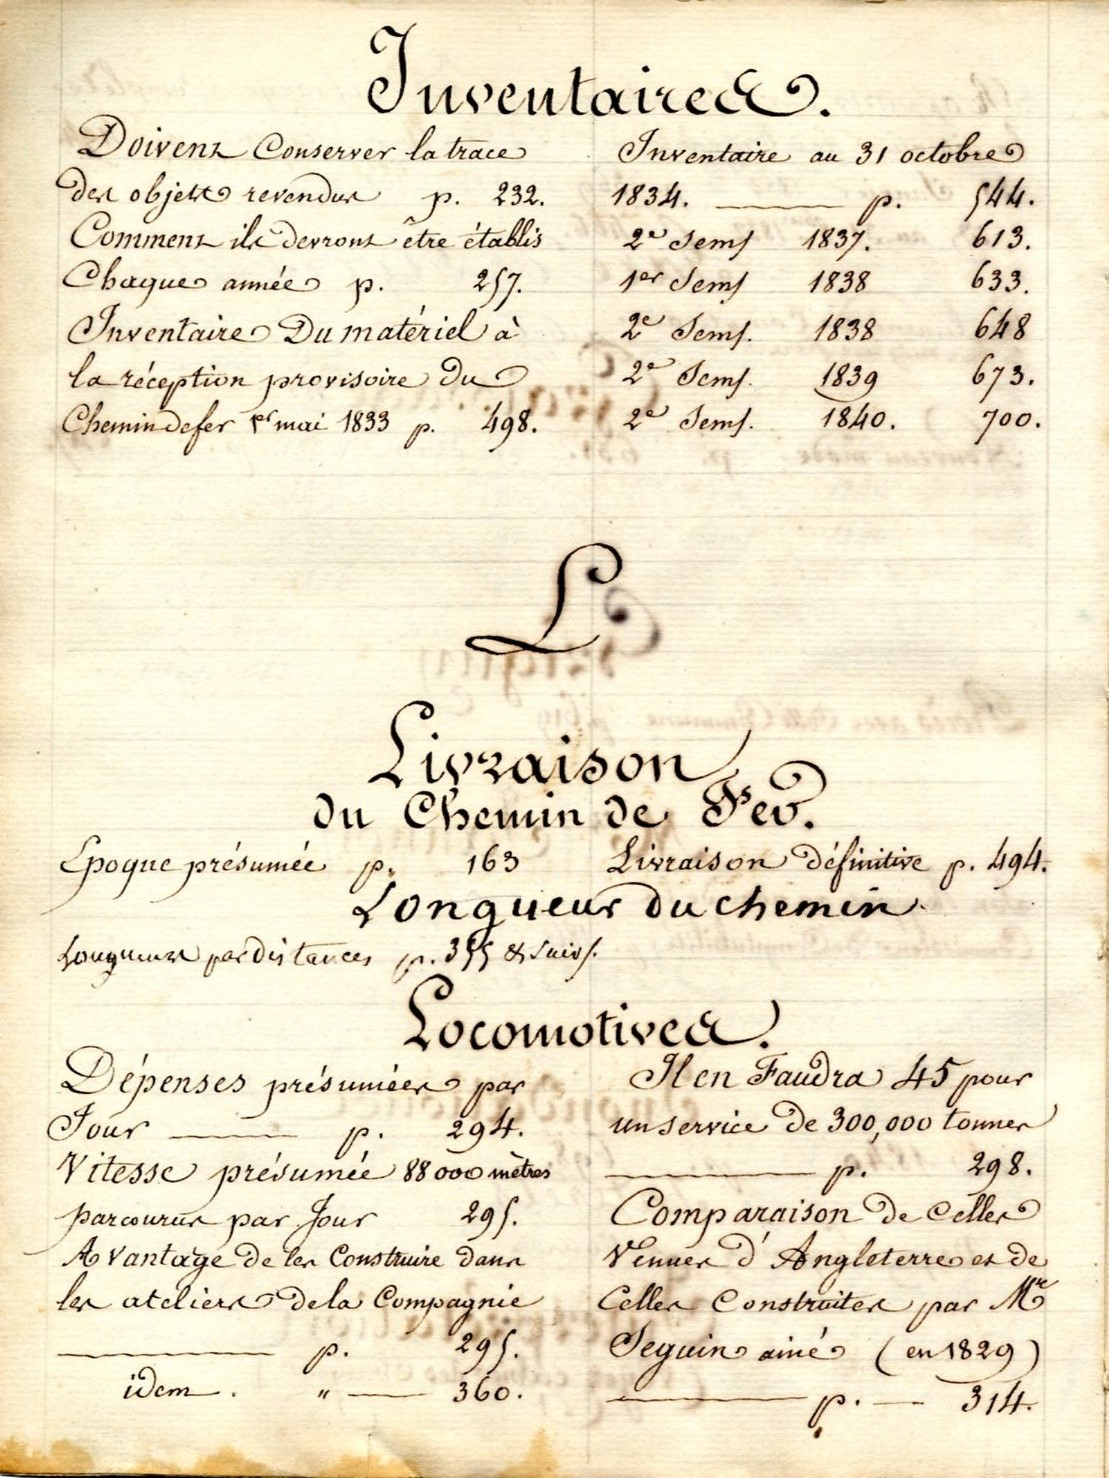 Inventaires.
Doivent Conserver la trace
des objets revendus p. 232.
Comment ils devront être établis
Chaque année p. 257.
Inventaire Du matériel à
la réception provisoire du
Chemin de fer 1er mai 1833 p. 498.
Inventaire au 31 octobre
1834. ——— p. 544.
2e Sems 1837. 613.
1er Sems 1838 633.
2e Sems. 1838 648
2e Sems. 1839 673.
2e Sems. 1840. 700.
L
Livraison
du Chemin de Fer.
Epoque présumée p. 163
Livraison définitive p. 494.
Longueur du chemin
Longueurs par distances p. 355 & suivs.
Locomotives.
Dépenses présumées par
Jour ——— p. 294.
Vitesse présumée 88000 mètres
parcourus par Jour 295.
Avantage de les Construire dans
les ateliers de la Compagnie
——— p. 295.
idem. " — 360.
Il en Faudra 45 pour
un service de 300,000 tonnes
——— p. 298.
Comparaison de Celles
Venues d'Angleterre et de
Celles Construites par Mr
Seguin ainé (en 1829)
——— p. — 314.